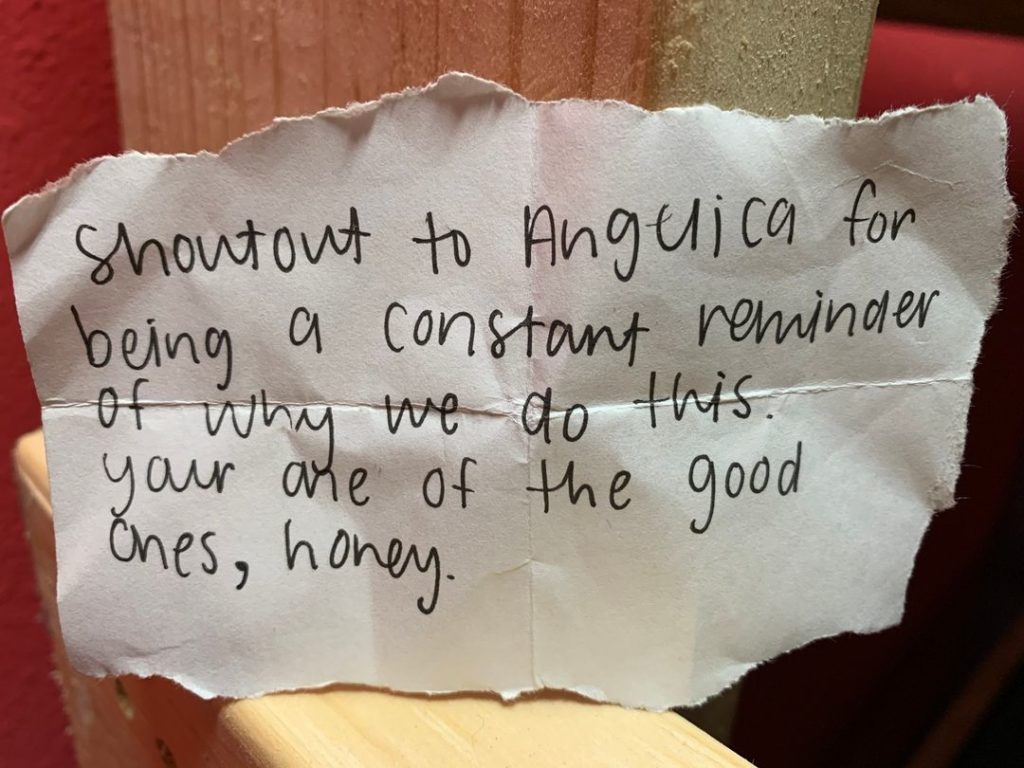 shoutout to Angelica for
being a constant reminder
of why we do this.
your one of the good
ones, honey.